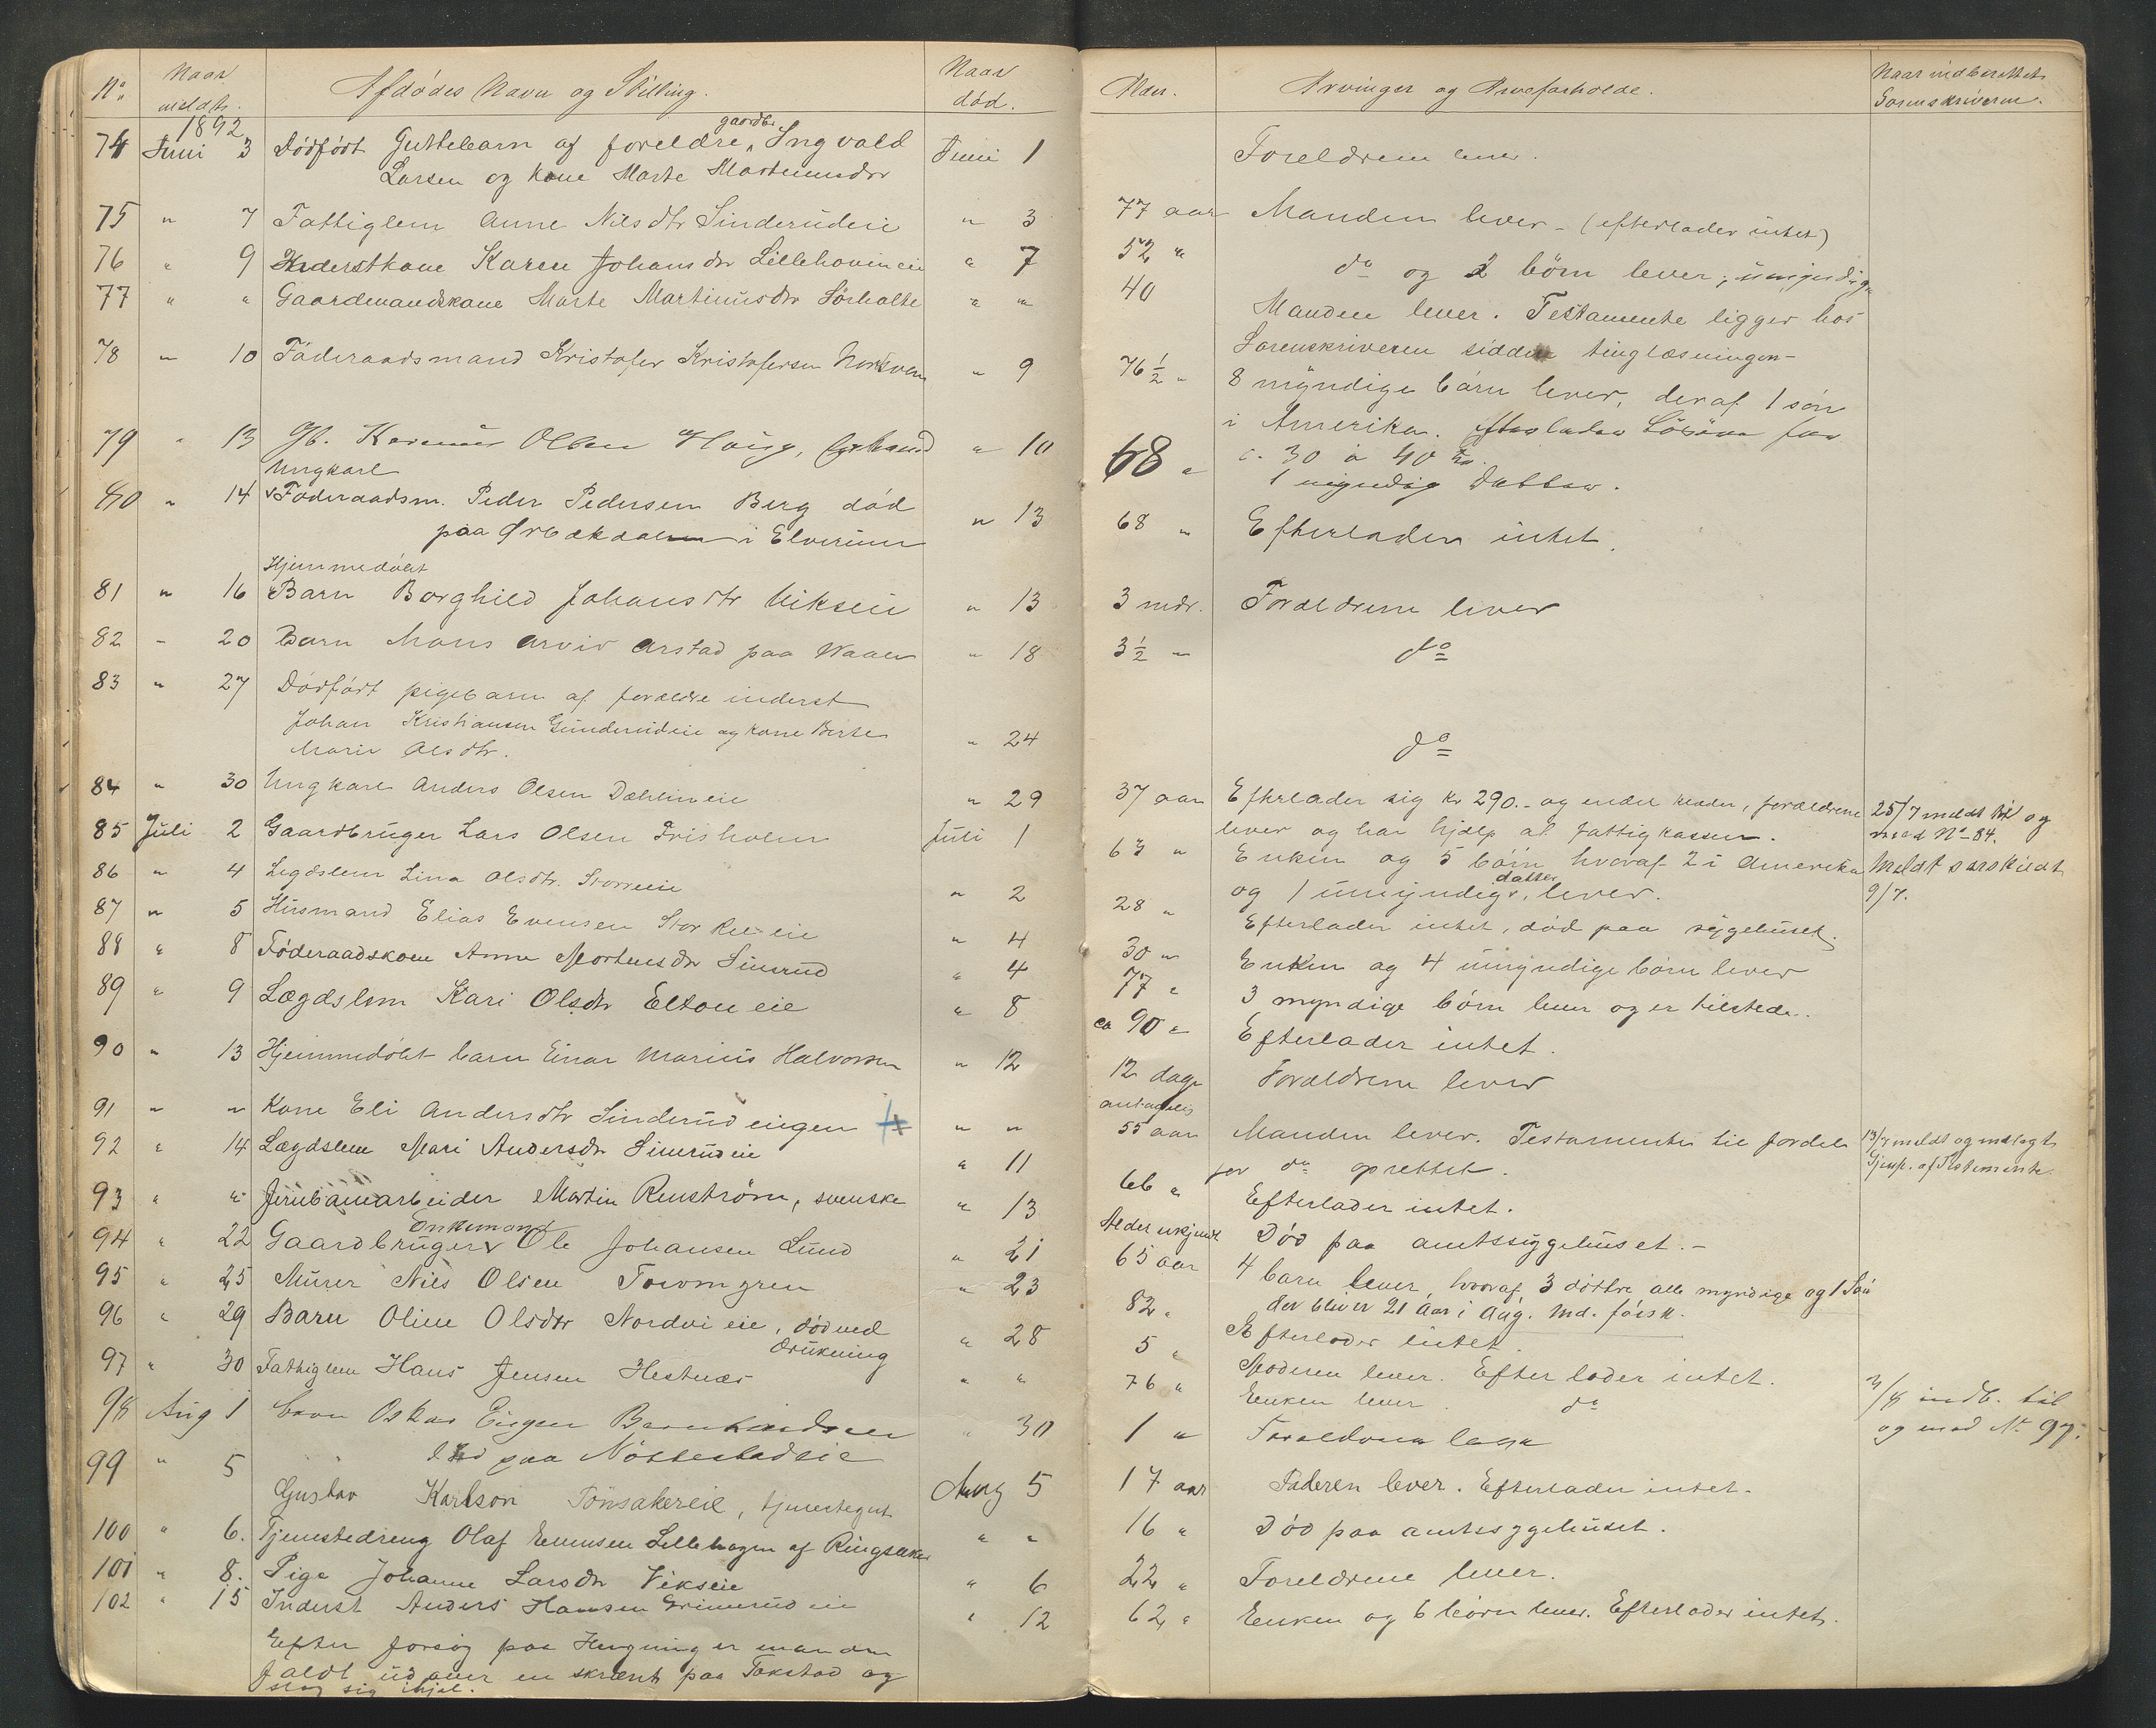 No.
Naar meldt.
Afdødes Navn og Stilling.
Naar død.
1892
74 Juni 3 Dödfödt Guttebarn af foreldre gaardbr Ingvald Juni 1
Larsen og kone Marte Martinusdtr
75 " 7 Fattiglem Anne Nilsdtr Sinderudeie " 3
76 " 9 Inderstkone Karen Johansdtr Lillehovineie " 7
77 " " Gaardmandskone Marte Martinusdtr Sörholte " "
78 " 10 Föderaadsmand Kristofer Kristofersen " 9
79 " 13 Gb. Olsen Haug, " 10
Ungkarl
80 " 14 Föderaadsm. Peder Pedersen Berg död " 13
paa i Elverum
Hjemmedöbt
81 " 16 Barn Borghild Johansdtr Vikseie " 13
82 " 20 Barn Hans Arvid Arstad paa Waaler " 18
83 " 27 Dödfödt pigebarn af forældre inderst
Johan Kristiansen Gunderudeie og kone Berte " 24
Marie Olsdtr.
84 " 30 Ungkarl Anders Olsen Dæhlineie " 29
85 Juli 2 Gaardbruger Lars Olsen Frisholm Juli 1
86 " 4 Legdslem Lina Olsdtr. " 2
87 " 5 Husmand Elias Evensen Stor " 4
88 " 8 Föderaadskone Anne Mortensdtr Simrud " 4
89 " 9 Lægdslem Kari Olsdtr Eltoneie " 8
90 " 13 Hjemmedöbt barn Einar Marius Halvorsen " 12
91 " " Kone Eli Andersdtr Sinderudeigen " "
92 " 14 Lægdslem Mari Andersdtr Simrudeie " 11
93 " " Jernbanearbeider Martin Renström, svenske " 13
Enkemand
94 " 22 Gaardbruger Ole Johansen Lund " 21
95 " 25 Murer Nils Olsen " 23
96 " 29 Barn Oline Olsdtr Nordvieie, död ved " 28
drukning
97 " 30 Fattiglem Hans Jensen Hestnæs " "
98 Aug 1 barn Oskar Eugen " 30
paa Nöttestadeie
99 " 5 Gustav Karlson Tönsakereie, tjenestegut Aug 5
100 " 6. Tjenestedreng Olaf Evensen Lillehagen af Ringsaker " "
101 " 8. Pige Johanne Larsdtr Vikseie " 6
102 " 15 Inderst Anders Hansen Grimerudeie " 12
Efter forsög paa Hengning er manden
faldt ud over en skrænt paa Tokstad og
slog sig ihjel.
Alder.
Arvinger og Arveforholde.
Naar indberettet
Sorenskriveren.
Foreldrene lever.
77 aar Manden lever - (efterlader intet)
52 " do og 2 börn lever, umyndige
40 Manden lever. Testamente ligger hos
Sorenskriveren siden tinglæsningen -
76 1/2 " 8 myndige börn lever, deraf 1 sön
i Amerika. Efterlader Lösöre for
c. 30 à 40 kr.
68 " 1 myndig Datter.
68 " Efterlader intet.
3 mdr. Forældrene lever
3 1/2 " do
do
37 aar Efterlader sig kr 290.- og endel klæder, forældrene 25/7 meldt til og
lever og har hjælp af fattigkassen. med No 84.
63 " Enken og 5 börn hvoraf 2 i Amerika Meldt særskildt
og 1 umyndig datter, lever. 9/7.
28 " Efterlader intet, död paa sygehuset.
30 " Enken og 4 umyndige börn lever
77 " 3 myndige börn lever og er tilstede.
ca 90 " Efterlader intet.
12 dage Forældrene lever
antagelig
55 aar Manden lever. Testamente til fordel 13/7 meldt og indlagt
for do oprettet. Gjenp. af Testamente
66 " Efterlader intet.
Alder ukjendt Död paa amtssygehuset. -
65 aar 4 barn lever, hvoraf 3 döttre alle myndige og 1 Sön
der bliver 21 aar i Aug. Md. förstk.
82 " Efterlader intet.
5 " Moderen lever. Efterlader intet.
76 " Enken lever. do 2/8 indb. til
og med No 97.
1 " Forældrene
17 aar Faderen lever. Efterlader intet.
16 " Död paa amtssygehuset.
22 " Foreldrene lever.
62 " Enken og 6 börn lever. Efterlader intet.